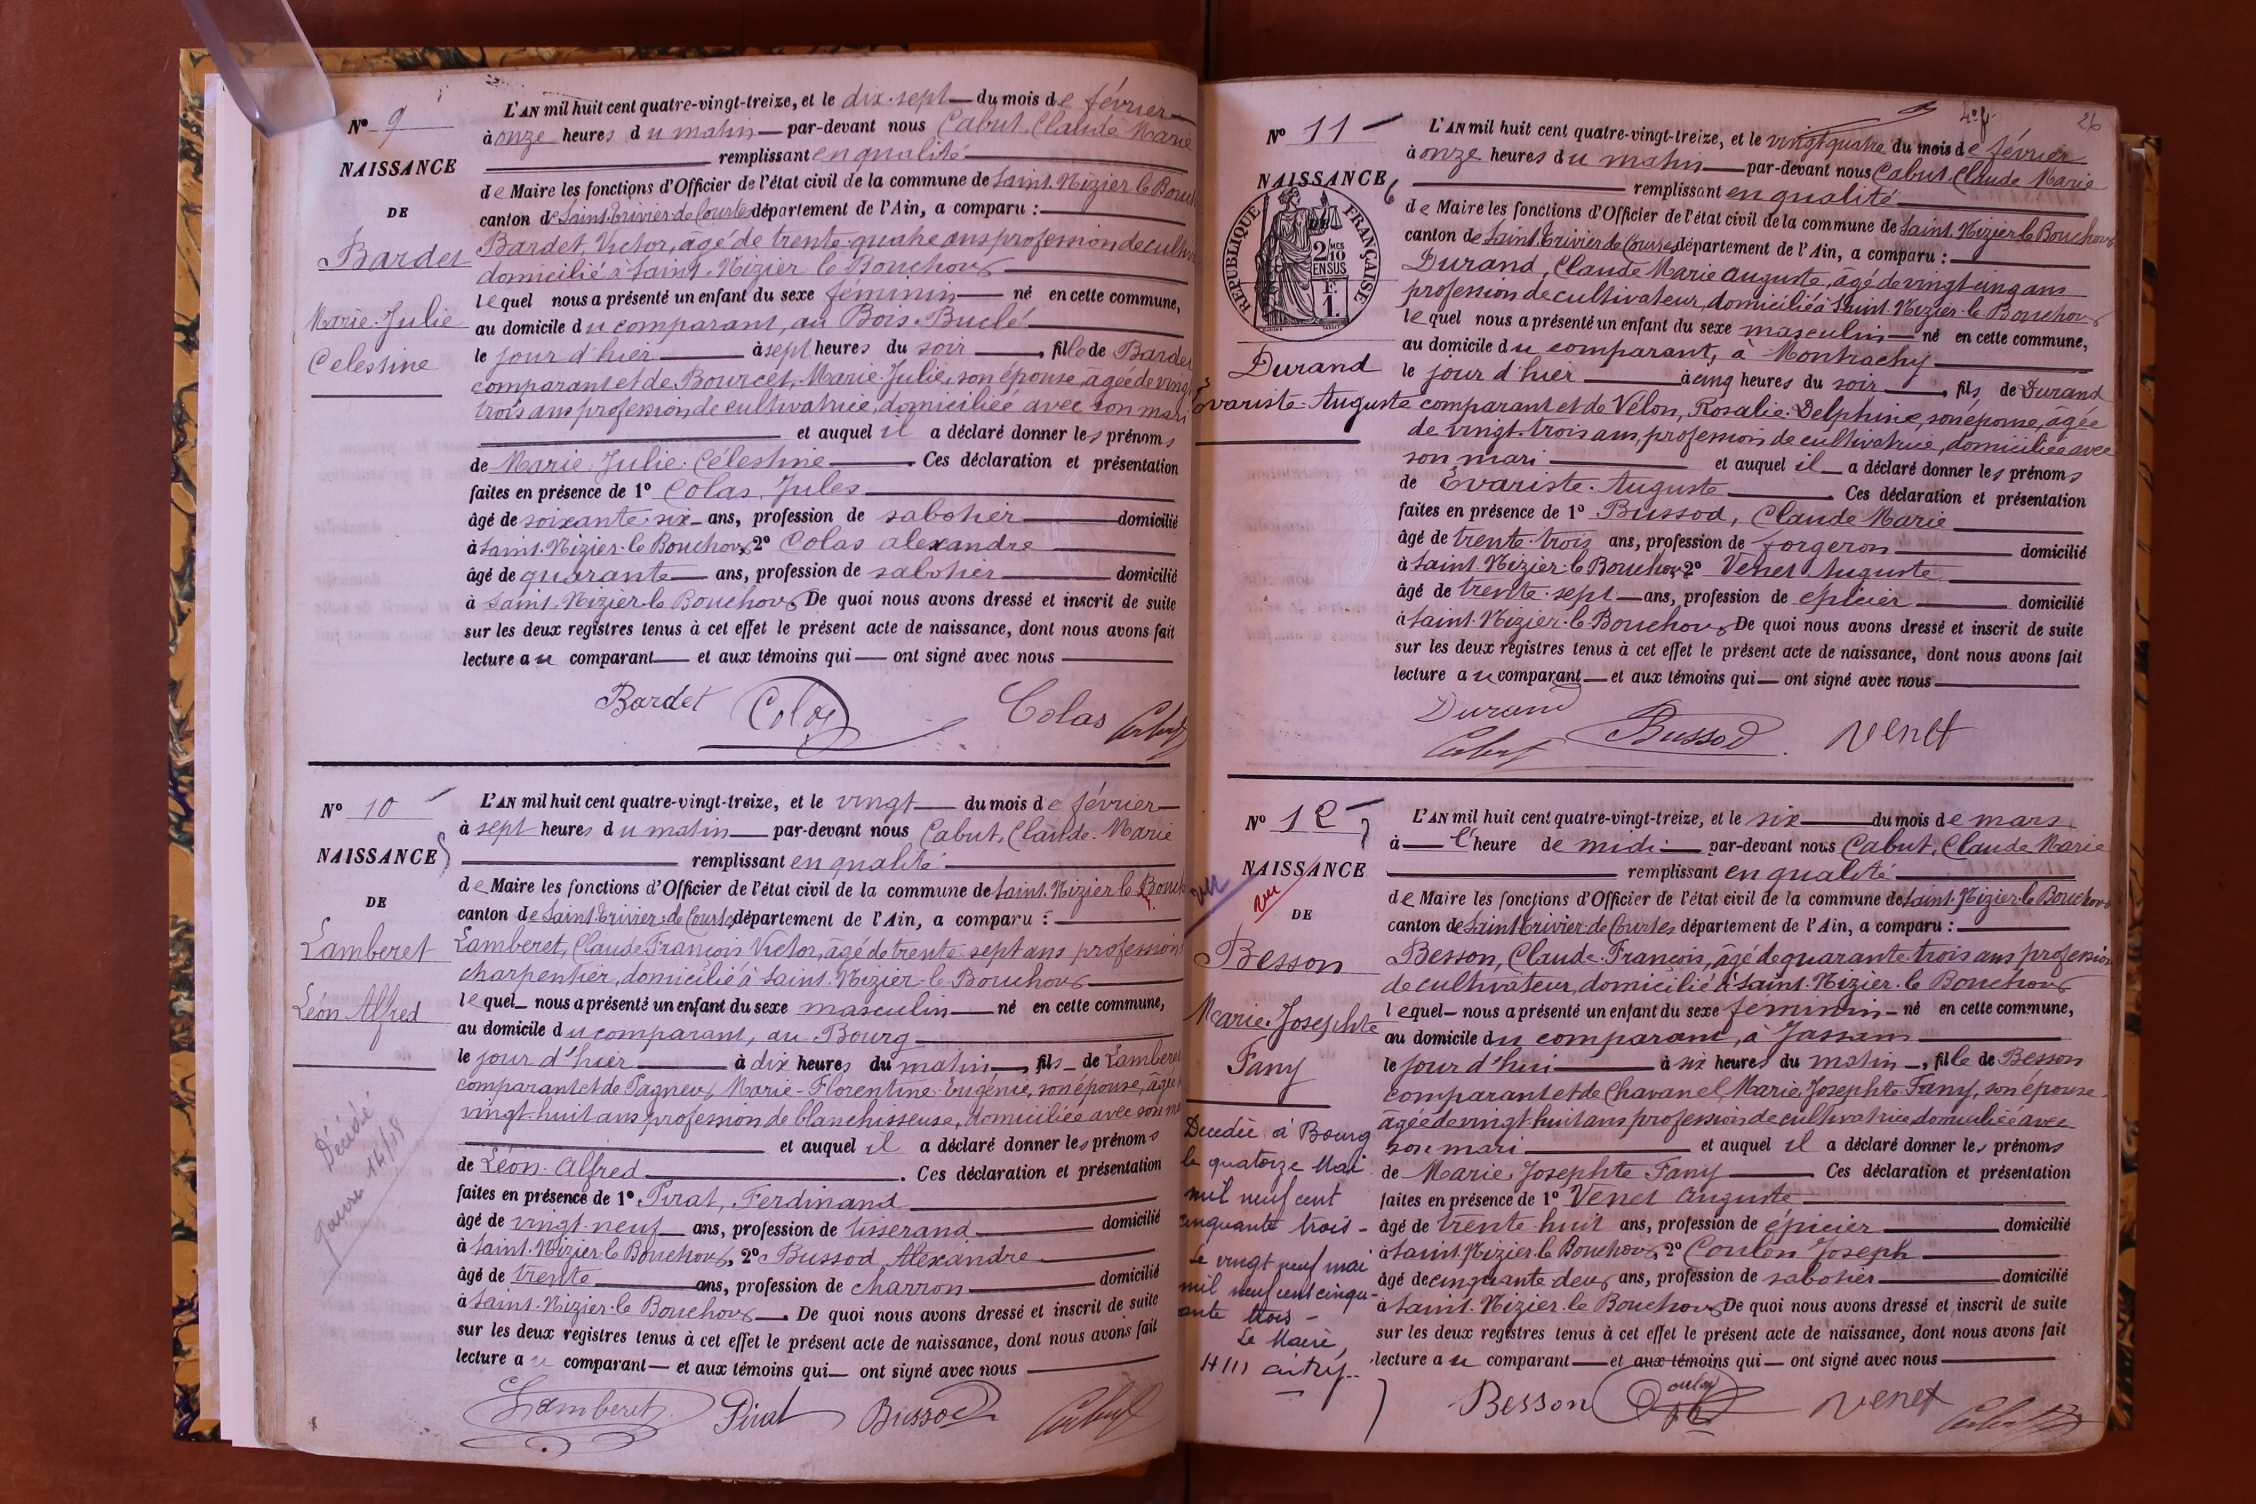 N° 9
NAISSANCE
DE
Bardet
Marie-Julie
Celestine
L'AN mil huit cent quatre-vingt-treize, et le dix-sept du mois de février
à onze heures du matin par-devant nous Cabut, Claude Marie
remplissant en qualité
de Maire les fonctions d'Officier de l'état civil de la commune de Saint-Nizier le Bouch
canton de Saint-Trivier-de Courtes département de l'Ain, a comparu :
Bardet, Victor, âgé de trente-quatre ans profession de cultiv
domicilié à Saint-Nizier le Bouchoux
lequel nous a présenté un enfant du sexe féminin né en cette commune,
au domicile du comparant, au Bois-Buclé
le jour d'hier à sept heures du soir, fille de Bardet
comparant et de Bourcet, Marie-Julie, son épouse, âgée de vingt
trois ans profession de cultivatrice, domiciliée avec son mari
et auquel il a déclaré donner les prénoms
de Marie-Julie-Célestine. Ces déclaration et présentation
faites en présence de 1° Colas, Jules
âgé de soixante-six ans, profession de sabotier domicilié
à Saint-Nizier-le Bouchoux 2° Colas alexandre
âgé de quarante ans, profession de sabotier domicilié
à Saint-Nizier-le Bouchoux De quoi nous avons dressé et inscrit de suite
sur les deux registres tenus à cet effet le présent acte de naissance, dont nous avons fait
lecture au comparant et aux témoins qui ont signé avec nous
Bardet Colas Colas Cabut
N° 10
NAISSANCE
DE
Lamberet
Léon Alfred
Décédé
L'AN mil huit cent quatre-vingt-treize, et le vingt du mois de février
à sept heures du matin par-devant nous Cabut, Claude-Marie
remplissant en qualité
de Maire les fonctions d'Officier de l'état civil de la commune de Saint-Nizier le Bouch
canton de Saint-Trivier-de Courtes, département de l'Ain, a comparu :
Lamberet, Claude François Victor, âgé de trente-sept ans profession
charpentier, domicilié à Saint-Nizier-le Bouchoux
lequel nous a présenté un enfant du sexe masculin né en cette commune,
au domicile du comparant, au Bourg
le jour d'hier à dix heures du matin, fils de Lamberet
comparant et de Pagneux, Marie-Florentine-Eugénie, son épouse, âgée
vingt-huit ans profession de blanchisseuse, domiciliée avec son ma
et auquel il a déclaré donner les prénoms
de Léon-Alfred. Ces déclaration et présentation
faites en présence de 1° Pirat, Ferdinand
âgé de vingt-neuf ans, profession de tisserand domicilié
à Saint-Nizier-le Bouchoux, 2° Bussod Alexandre
âgé de trente ans, profession de charron domicilié
à Saint-Nizier-le Bouchoux. De quoi nous avons dressé et inscrit de suite
sur les deux registres tenus à cet effet le présent acte de naissance, dont nous avons fait
lecture au comparant et aux témoins qui ont signé avec nous
Lamberet Pirat Bussod Cabut
26
N° 11
NAISSANCE
DE
RÉPUBLIQUE FRANÇAISE
2 MES
10
EN SUS
1 F.
Durand
Évariste-Auguste
L'AN mil huit cent quatre-vingt-treize, et le vingt-quatre du mois de février
à onze heures du matin par-devant nous Cabut, Claude Marie
remplissant en qualité
de Maire les fonctions d'Officier de l'état civil de la commune de Saint-Nizier le Bouchoux
canton de Saint-Trivier de Courtes, département de l'Ain, a comparu :
Durand, Claude Marie auguste, âgé de vingt-cinq ans
profession de cultivateur, domicilié à Saint-Nizier-le Bouchoux
lequel nous a présenté un enfant du sexe masculin né en cette commune,
au domicile du comparant, à Montrachy
le jour d'hier à cinq heures du soir, fils de Durand
comparant et de Velon, Rosalie-Delphine, son épouse, âgée
de vingt-trois ans, profession de cultivatrice, domiciliée avec
son mari et auquel il a déclaré donner les prénoms
de Évariste-Auguste. Ces déclaration et présentation
faites en présence de 1° Bussod, Claude Marie
âgé de trente-trois ans, profession de forgeron domicilié
à Saint-Nizier-le Bouchoux 2° Venet Auguste
âgé de trente-sept ans, profession de épicier domicilié
à Saint-Nizier-le Bouchoux De quoi nous avons dressé et inscrit de suite
sur les deux registres tenus à cet effet le présent acte de naissance, dont nous avons fait
lecture au comparant et aux témoins qui ont signé avec nous
Durand Bussod Venet
Cabut
N° 12
NAISSANCE
vu vu
DE
Besson
Marie-Josephte
Fany
Décédée à Bourg
le quatorze Mai
mil neuf cent
cinquante trois -
Le vingt neuf mai
mil neuf cent cinqu-
ante trois -
Le Maire,
L'AN mil huit cent quatre-vingt-treize, et le six du mois de mars
à l'heure de midi par-devant nous Cabut, Claude Marie
remplissant en qualité
de Maire les fonctions d'Officier de l'état civil de la commune de Saint-Nizier-le Bouchoux
canton de Saint-Trivier-de Courtes département de l'Ain, a comparu :
Besson, Claude-François, âgé de quarante-trois ans profession
de cultivateur, domicilié à Saint-Nizier-le Bouchoux
lequel nous a présenté un enfant du sexe féminin né en cette commune,
au domicile du comparant, à Jassans
le jour d'hui à six heures du matin, fille de Besson
comparant et de Chavanel, Marie Josephte Fany, son épouse
âgée de vingt-huit ans profession de cultivatrice domiciliée avec
son mari et auquel il a déclaré donner les prénoms
de Marie, Josephte Fany Ces déclaration et présentation
faites en présence de 1° Venet auguste
âgé de trente-huit ans, profession de épicier domicilié
à Saint-Nizier-le Bouchoux 2° Coulon Joseph
âgé de cinquante deux ans, profession de sabotier domicilié
à Saint-Nizier-le Bouchoux De quoi nous avons dressé et inscrit de suite
sur les deux registres tenus à cet effet le présent acte de naissance, dont nous avons fait
lecture au comparant et aux témoins qui ont signé avec nous
Besson Coulon Venet Cabut